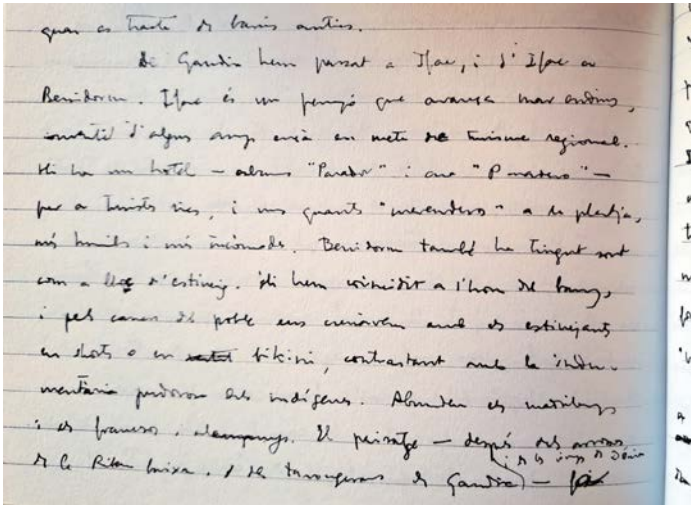 quan es tracta de barris antics.
De Gandia hem passat a Ifac, i d'Ifac a
Benidorm. Ifac és un penyó que avança mar endins,
convertit d'alguns anys ençà en meta de turisme regional.
Hi ha un hotel — "Parador" i ara " — 
per a turistes rics, i uns quants "merenderos" a la platja,
més humils i més incòmodes. Benidorm també ha tingut sort
com a lloc d'estiueig. Hi hem coincidit a l'hora del bany,
i pels carrers del poble ens creuàvem amb els estiuejants
en shorts o en bikini, contrastant amb la indu-
mentària pudorosa dels indígenes. Abunden els madrilenys
i els francesos. El paisatge — després dels arrossars
de la Ribera baixa, i dels tarongerars de Gandia —
i de les vinyes de Dénia